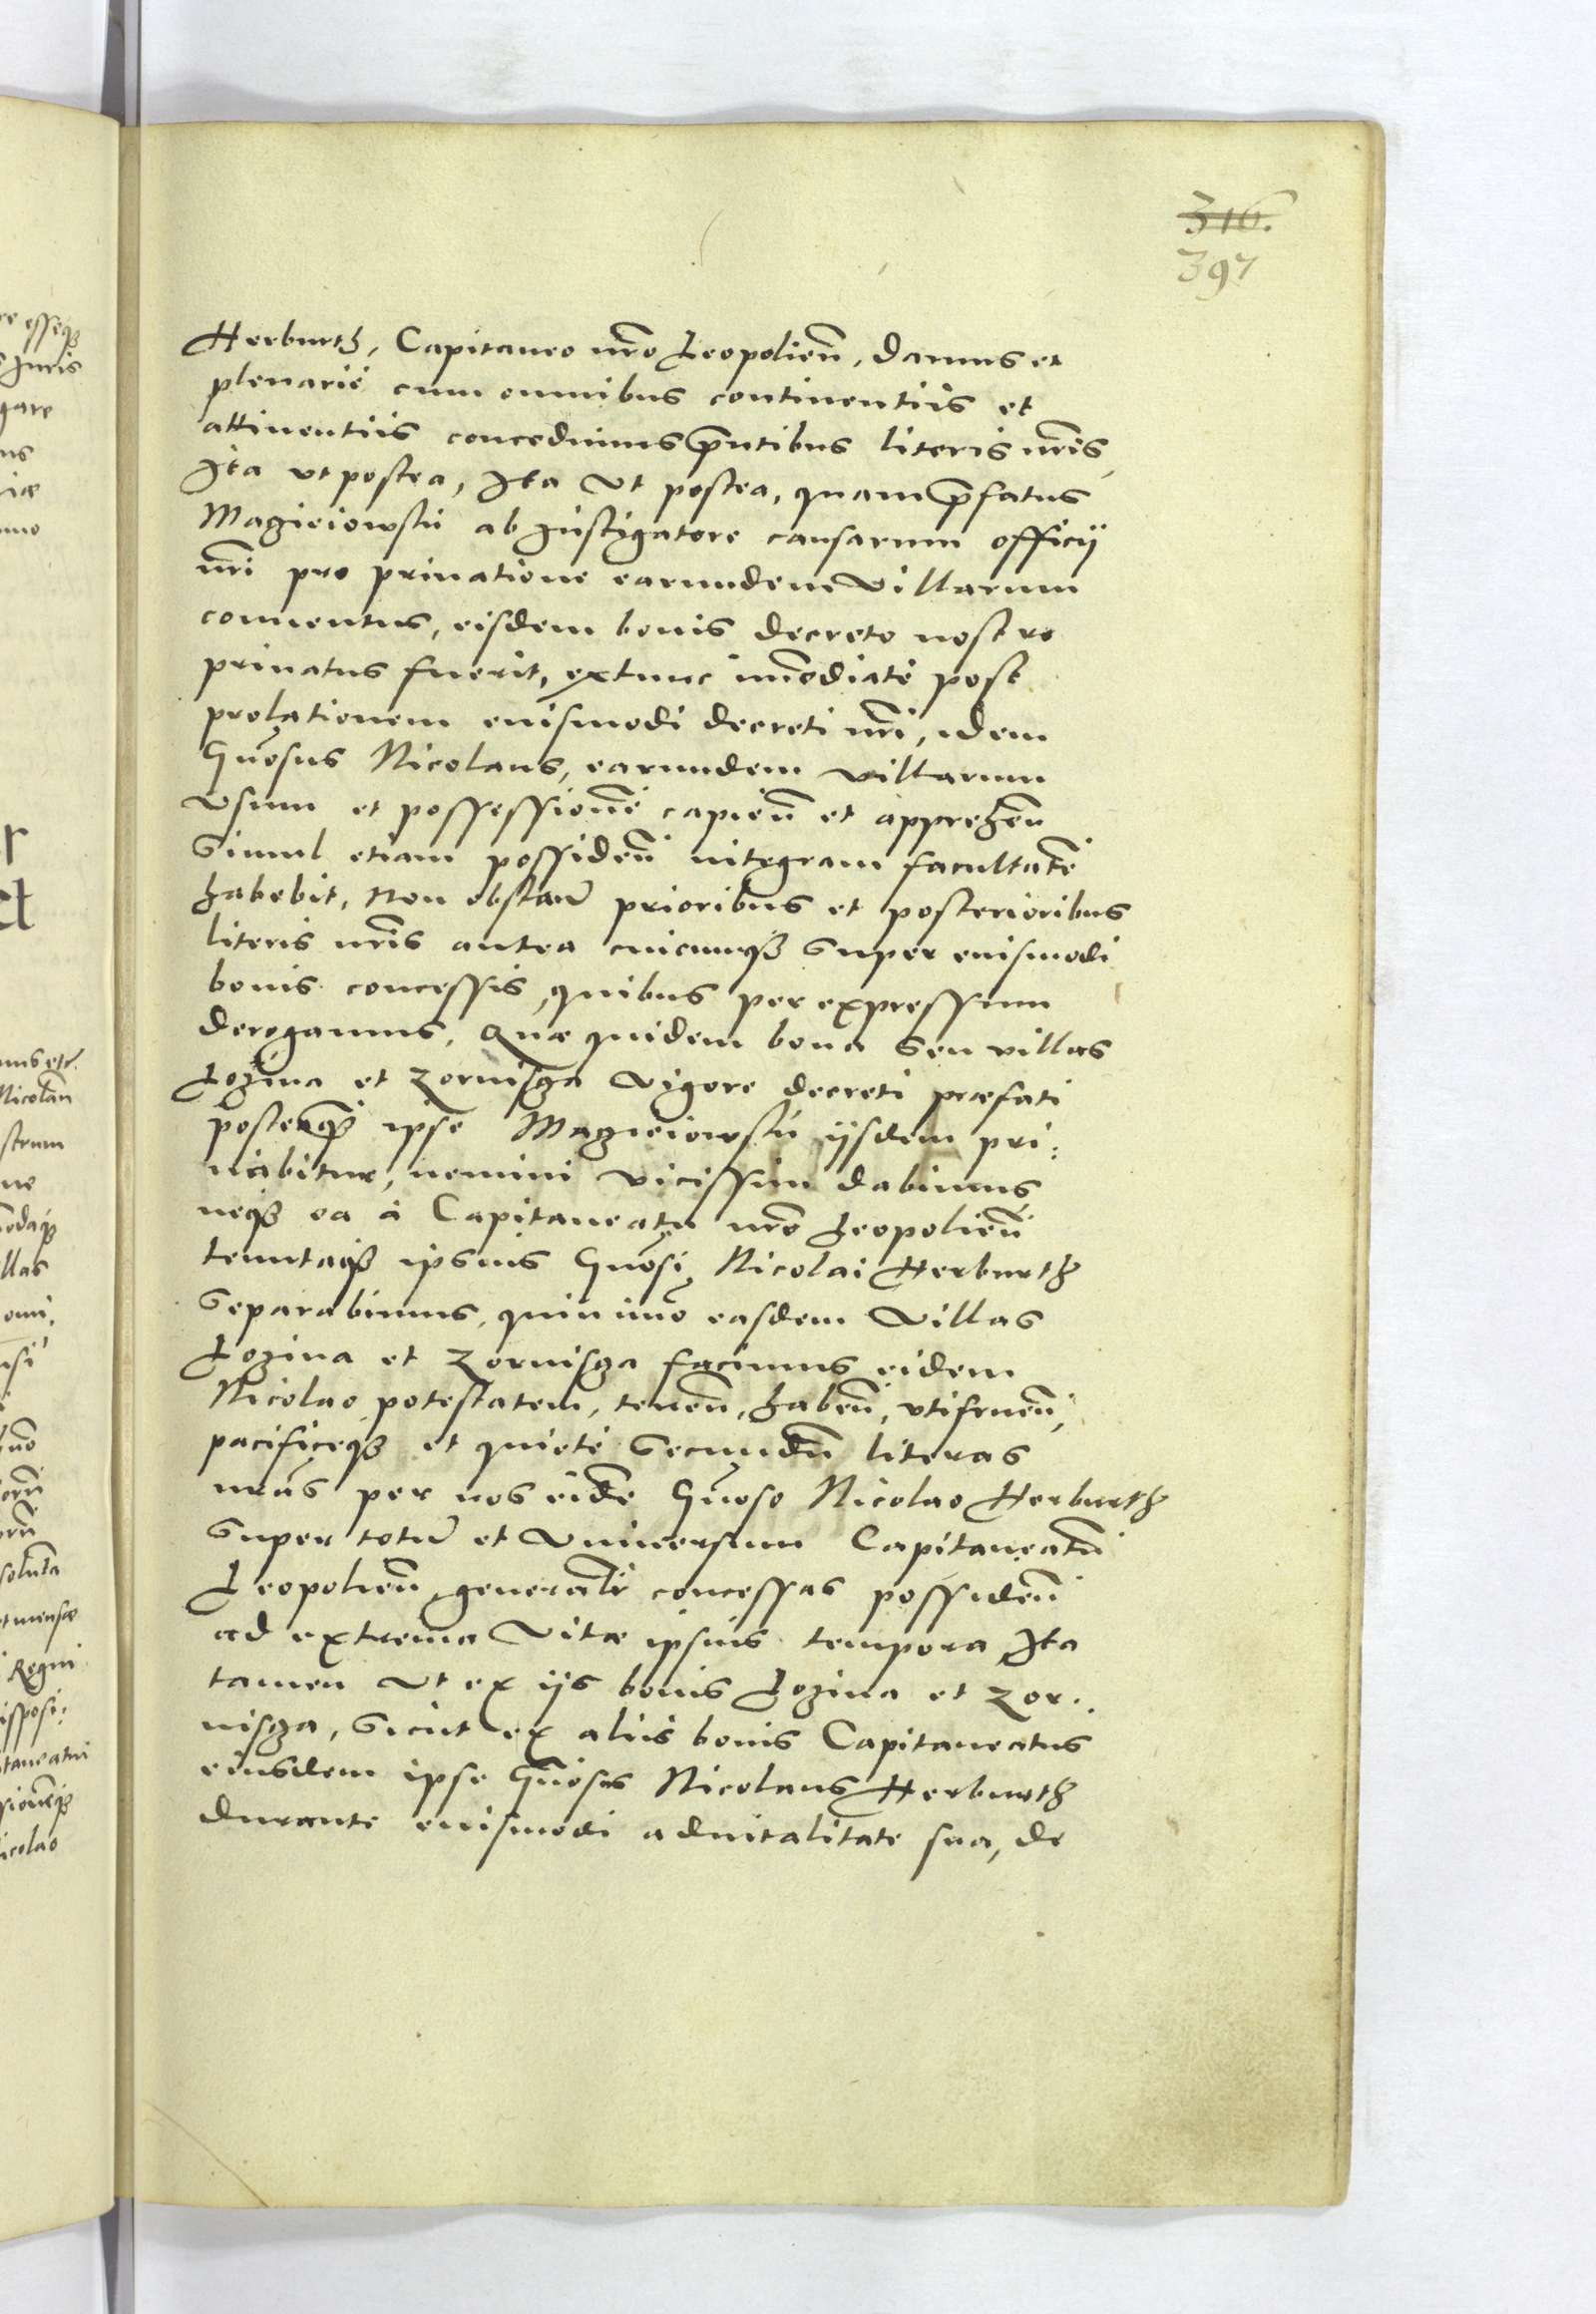 316.
397
Herburth, Capitaneo nr̃o Leopolien̄, damus et
plenariè cum omnibus continentiis et
attinentiis concedimus p̃ntibus literis nr̃is,
Ita ut postea, Ita Ut postea, quam p̃fatus
Magieiowski ab Instigatore causarum officij
nr̃i pro priuatione earundem Villarum
conuentus, eisdem bonis decreto nostro
priuatus fuerit, extunc im̃ediatè post
prolationem euismodi decreti nr̃i, idem
Gn̄osus Nicolaus, earundem villarum
Usum et possessionē capien̄ et apprehen̄
Simul etiam possiden̄ integram facultatē
habebit, Non obstan̄ prioribus et posterioribus
literis nr̃is antea cuicunq₃ Super euismodi
bonis concessis, quibus per expressum
derogamus, Quæ quidem bona Seu villas
Lozina et Zornisga Vigore decreti præfati
posteaq̃ ipse Magieiowski ijsdem pri:
uabitur, nemini vicissim dabimus
neq₃ ea à Capitaneatu nr̃o Leopolien̄
tenutaq₃ ipsius Gn̄osi Nicolai Herburth
Separabimus, quin imo easdem Villas
Lozina et Zornisga facimus eidem
Nicolao potestatem, tenen̄, haben̄, utifruen̄,
pacificeq₃ et quietè Secundū literas
nr̃as per nos eidē Gn̄oso Nicolao Herburth
Super totū et Vniuersum Capitaneatū
Leopolien̄ generalr̃ concessas possiden̄
ad extrema Vitæ ipsius tempora, Ita
tamen Ut ex ijs bonis Lozina et Zor:
nisga, Sicut ex aliis bonis Capitaneatus
eiusdem ipse Gn̄osus Nicolaus Herburth
durante euismodi aduitalitate sua, de